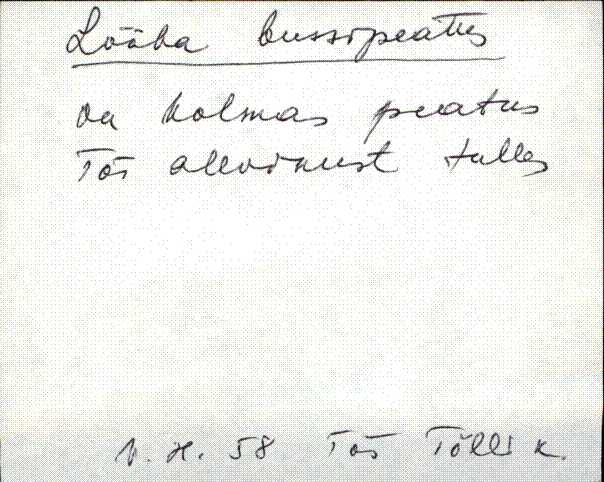 Lööba bussipeatus
on kolmas peatus
Tös alevikust tulles
V. H. 58 Tös Tölli k.